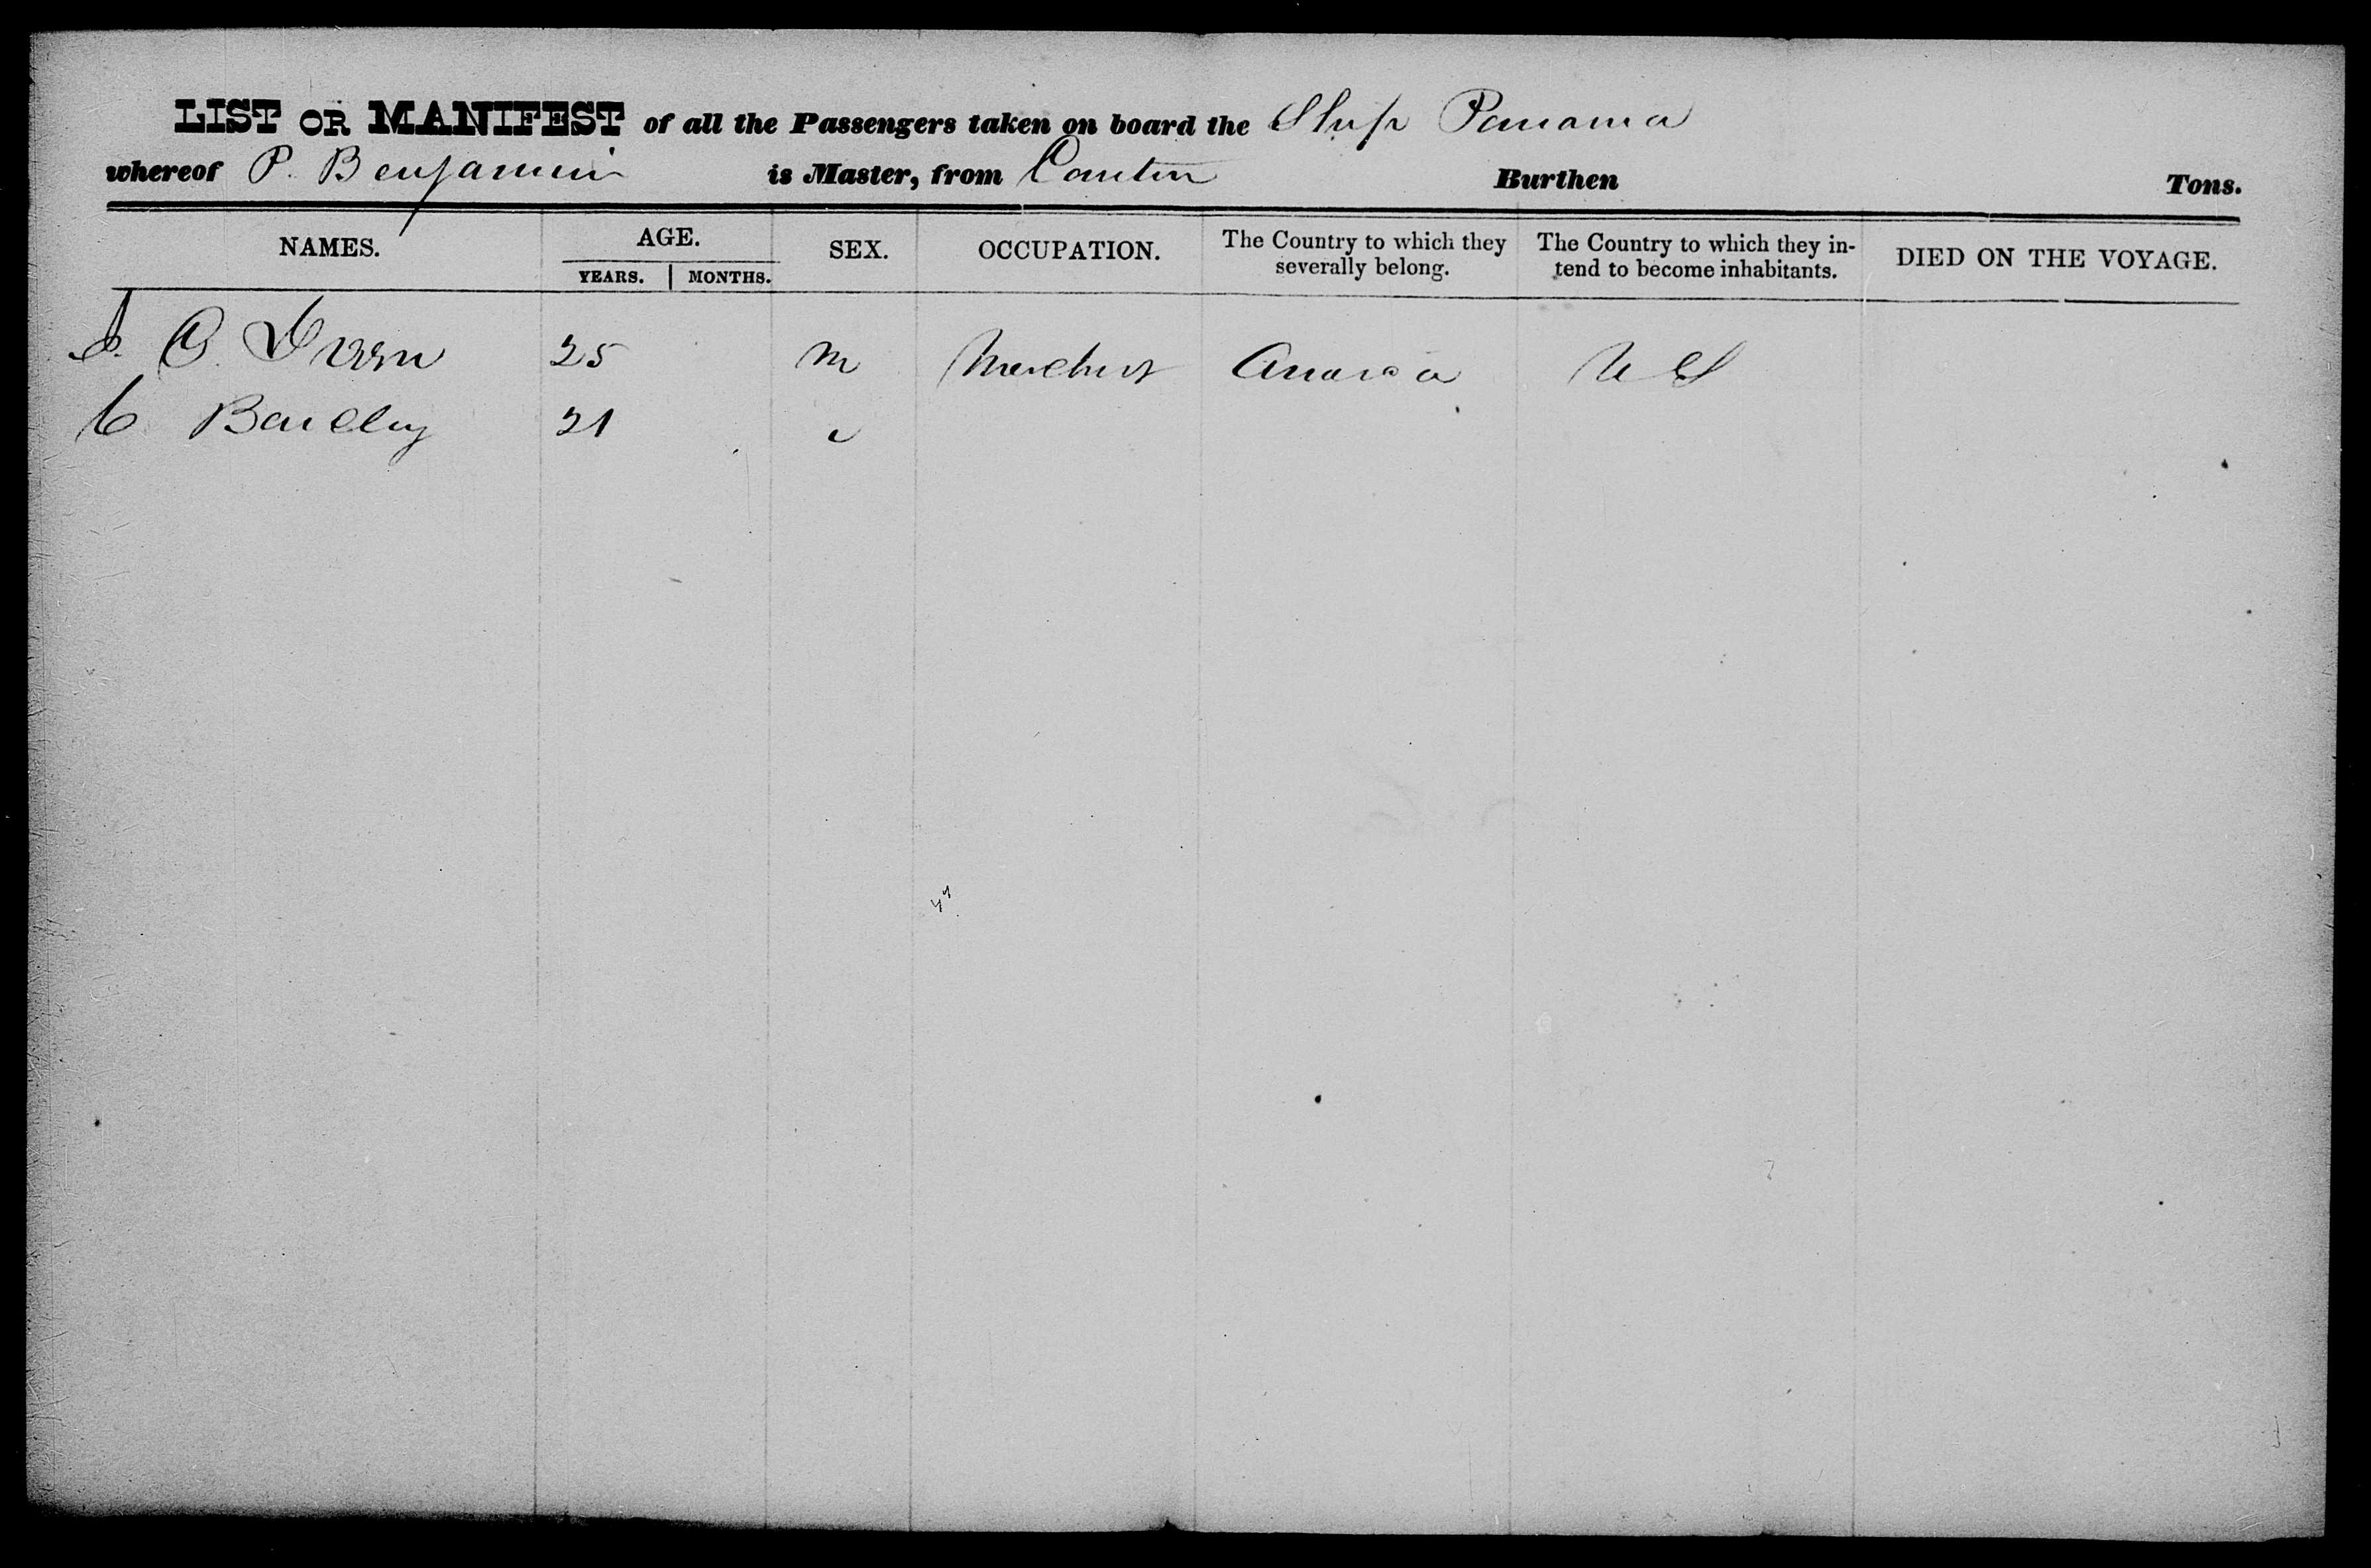 LIST OR MANIFEST of all the Passengers taken on board the Ship Panama
whereof P. Benjamin is Master, from Canton Burthen Tons.
NAMES. AGE. SEX. OCCUPATION. The Country to which they severally belong. The Country to which they intend to become inhabitants. DIED ON THE VOYAGE.
YEARS. MONTHS.
O. 25 m Merchant America U S
C Barclay 21 "